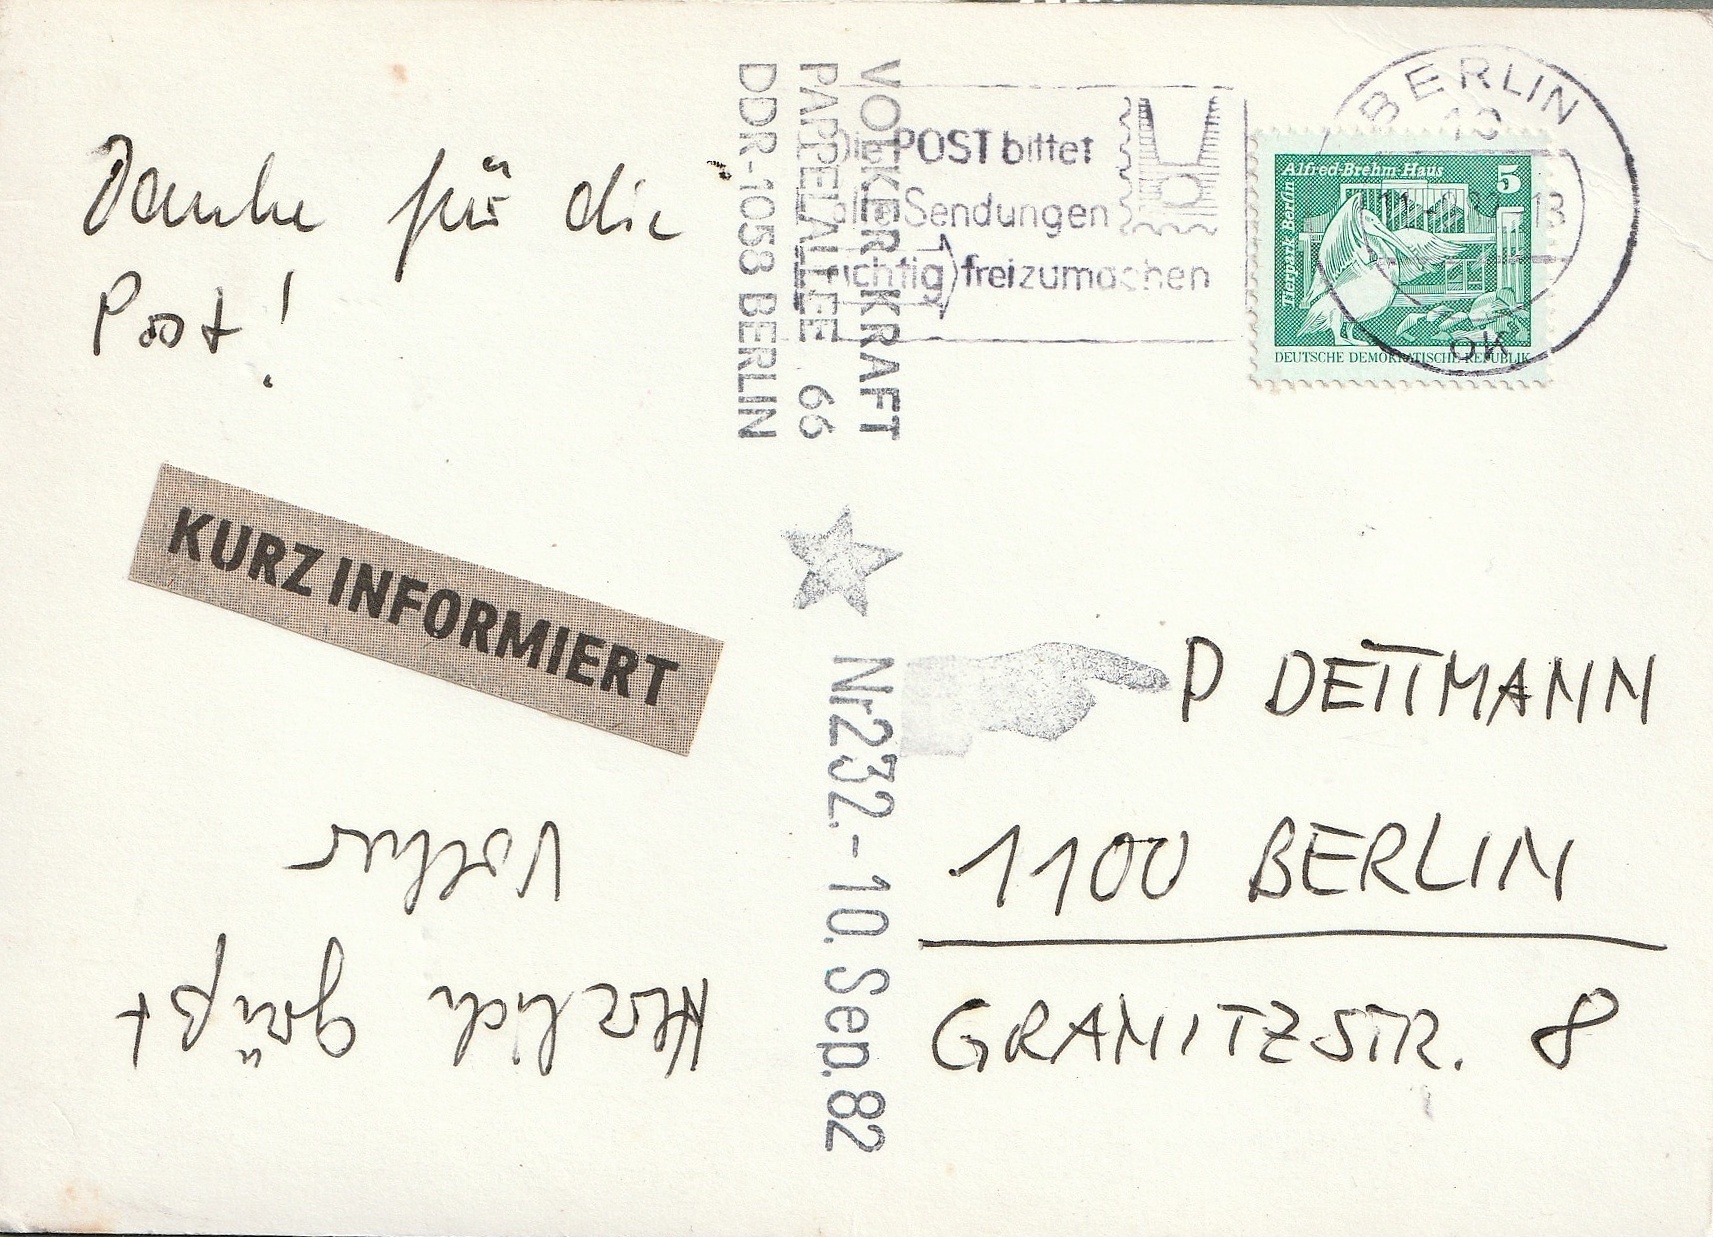 Danke für die
Post!
KURZ INFORMIERT
Herzlich grüßt
Volker
VOLKER KRAFT
PAPPELALLEE 66
DDR-1058 BERLIN
Nr232.-10.Sep.82
Die POST bittet
alle Sendungen
richtig freizumachen
BERLIN
Alfred-Brehm-Haus
5
Tierpark Berlin
DEUTSCHE DEMOKRATISCHE REPUBLIK
P DETTMANN
1100 BERLIN
GRANITZSTR. 8